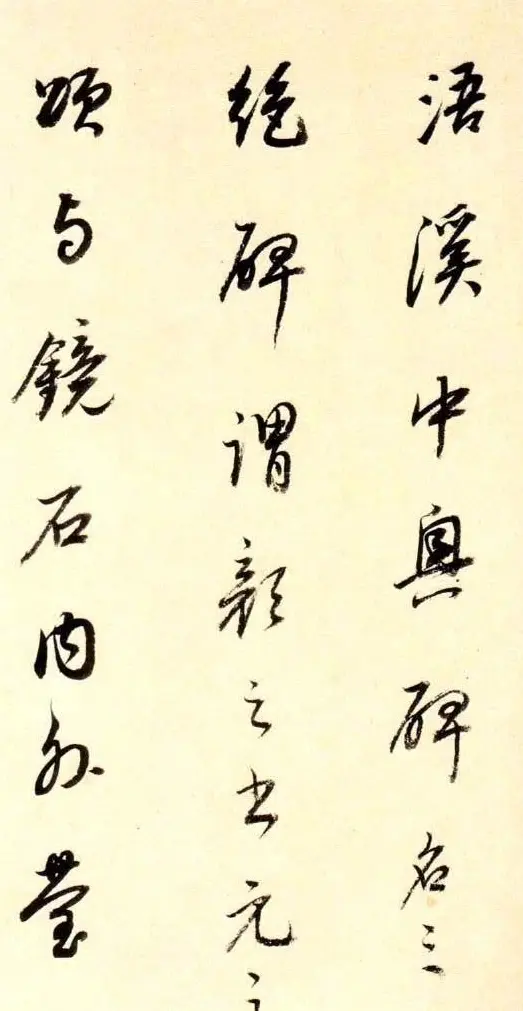 浯溪中興碑名三
絶碑謂顔之書元之
頌与鏡石内外瑩